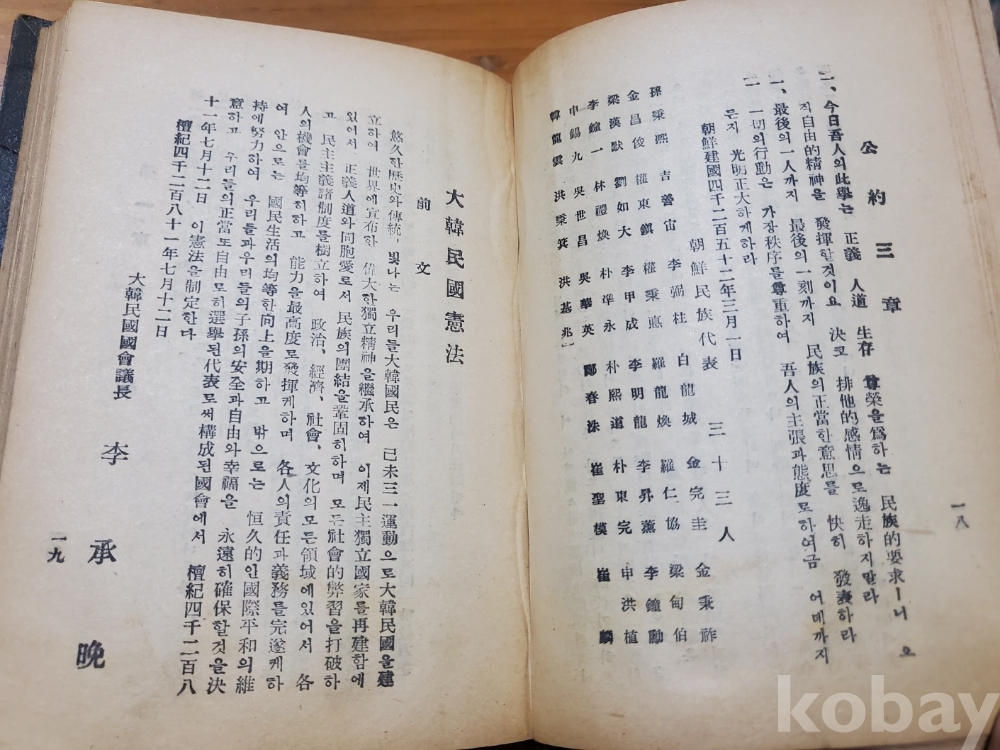 公約三章
一、今日吾人의此擧는 正義 人道 生存 尊榮을爲하는 民族的要求ㅣ니 오
지自由的精神을 發揮할것이요 決코 排他的感情으로逸走하지말라
一、最後의一人까지 最後의一刻까지 民族의正當한意思를 快히 發表하라
一 一切의行動은 가장秩序를尊重하여 吾人의主張과態度로하여금 어데까지
든지 光明正大하게하라
朝鮮建國四千二百五十二年三月一日
朝鮮民族代表 三十三人
孫秉熙 吉善宙 李弼柱 白龍城 金完圭 金秉祚
金昌俊 權東鎭 權秉悳 羅龍煥 羅仁協 梁甸伯
梁漢默 劉如大 李甲成 李明龍 李昇薰 李鐘勳
李鐘一 林禮煥 朴準永 朴熙道 朴東完 申洪植
申錫九 吳世昌 吳華英 鄭春洙 崔聖模 崔麟
韓龍雲 洪秉箕 洪基兆
一八
大韓民國憲法
前文
悠久한歷史와傳統,빛나는 우리들大韓國民은 己未三一運動으로大韓民國을建
立하여 世界에宣布한 偉大한獨立精神을繼承하여 이제民主獨立國家를再建함에
있어서 正義人道와同胞愛로서 民族의團結을鞏固히하며 모든社會的弊習을打破하
고 民主主義諸制度를樹立하여 政治、經濟、社會、文化의모든領域에있어서 各
人의機會를均等히하고 能力을最高度로發揮케하며 各人의責任과義務를完遂케하
여 안으로는 國民生活의均等한向上을期하고 밖으로는 恒久的인國際平和의維
持에努力하여 우리들과우리들의子孫의安全과自由와幸福을 永遠히確保할것을決
意하고 우리들의正當또自由로히選擧된代表로써構成된國會에서 檀紀四千二百八
十一年七月十二日 이憲法을制定한다
檀紀四千二百八十一年七月十二日
大韓民國國會議長
李承晩
一九
kobay